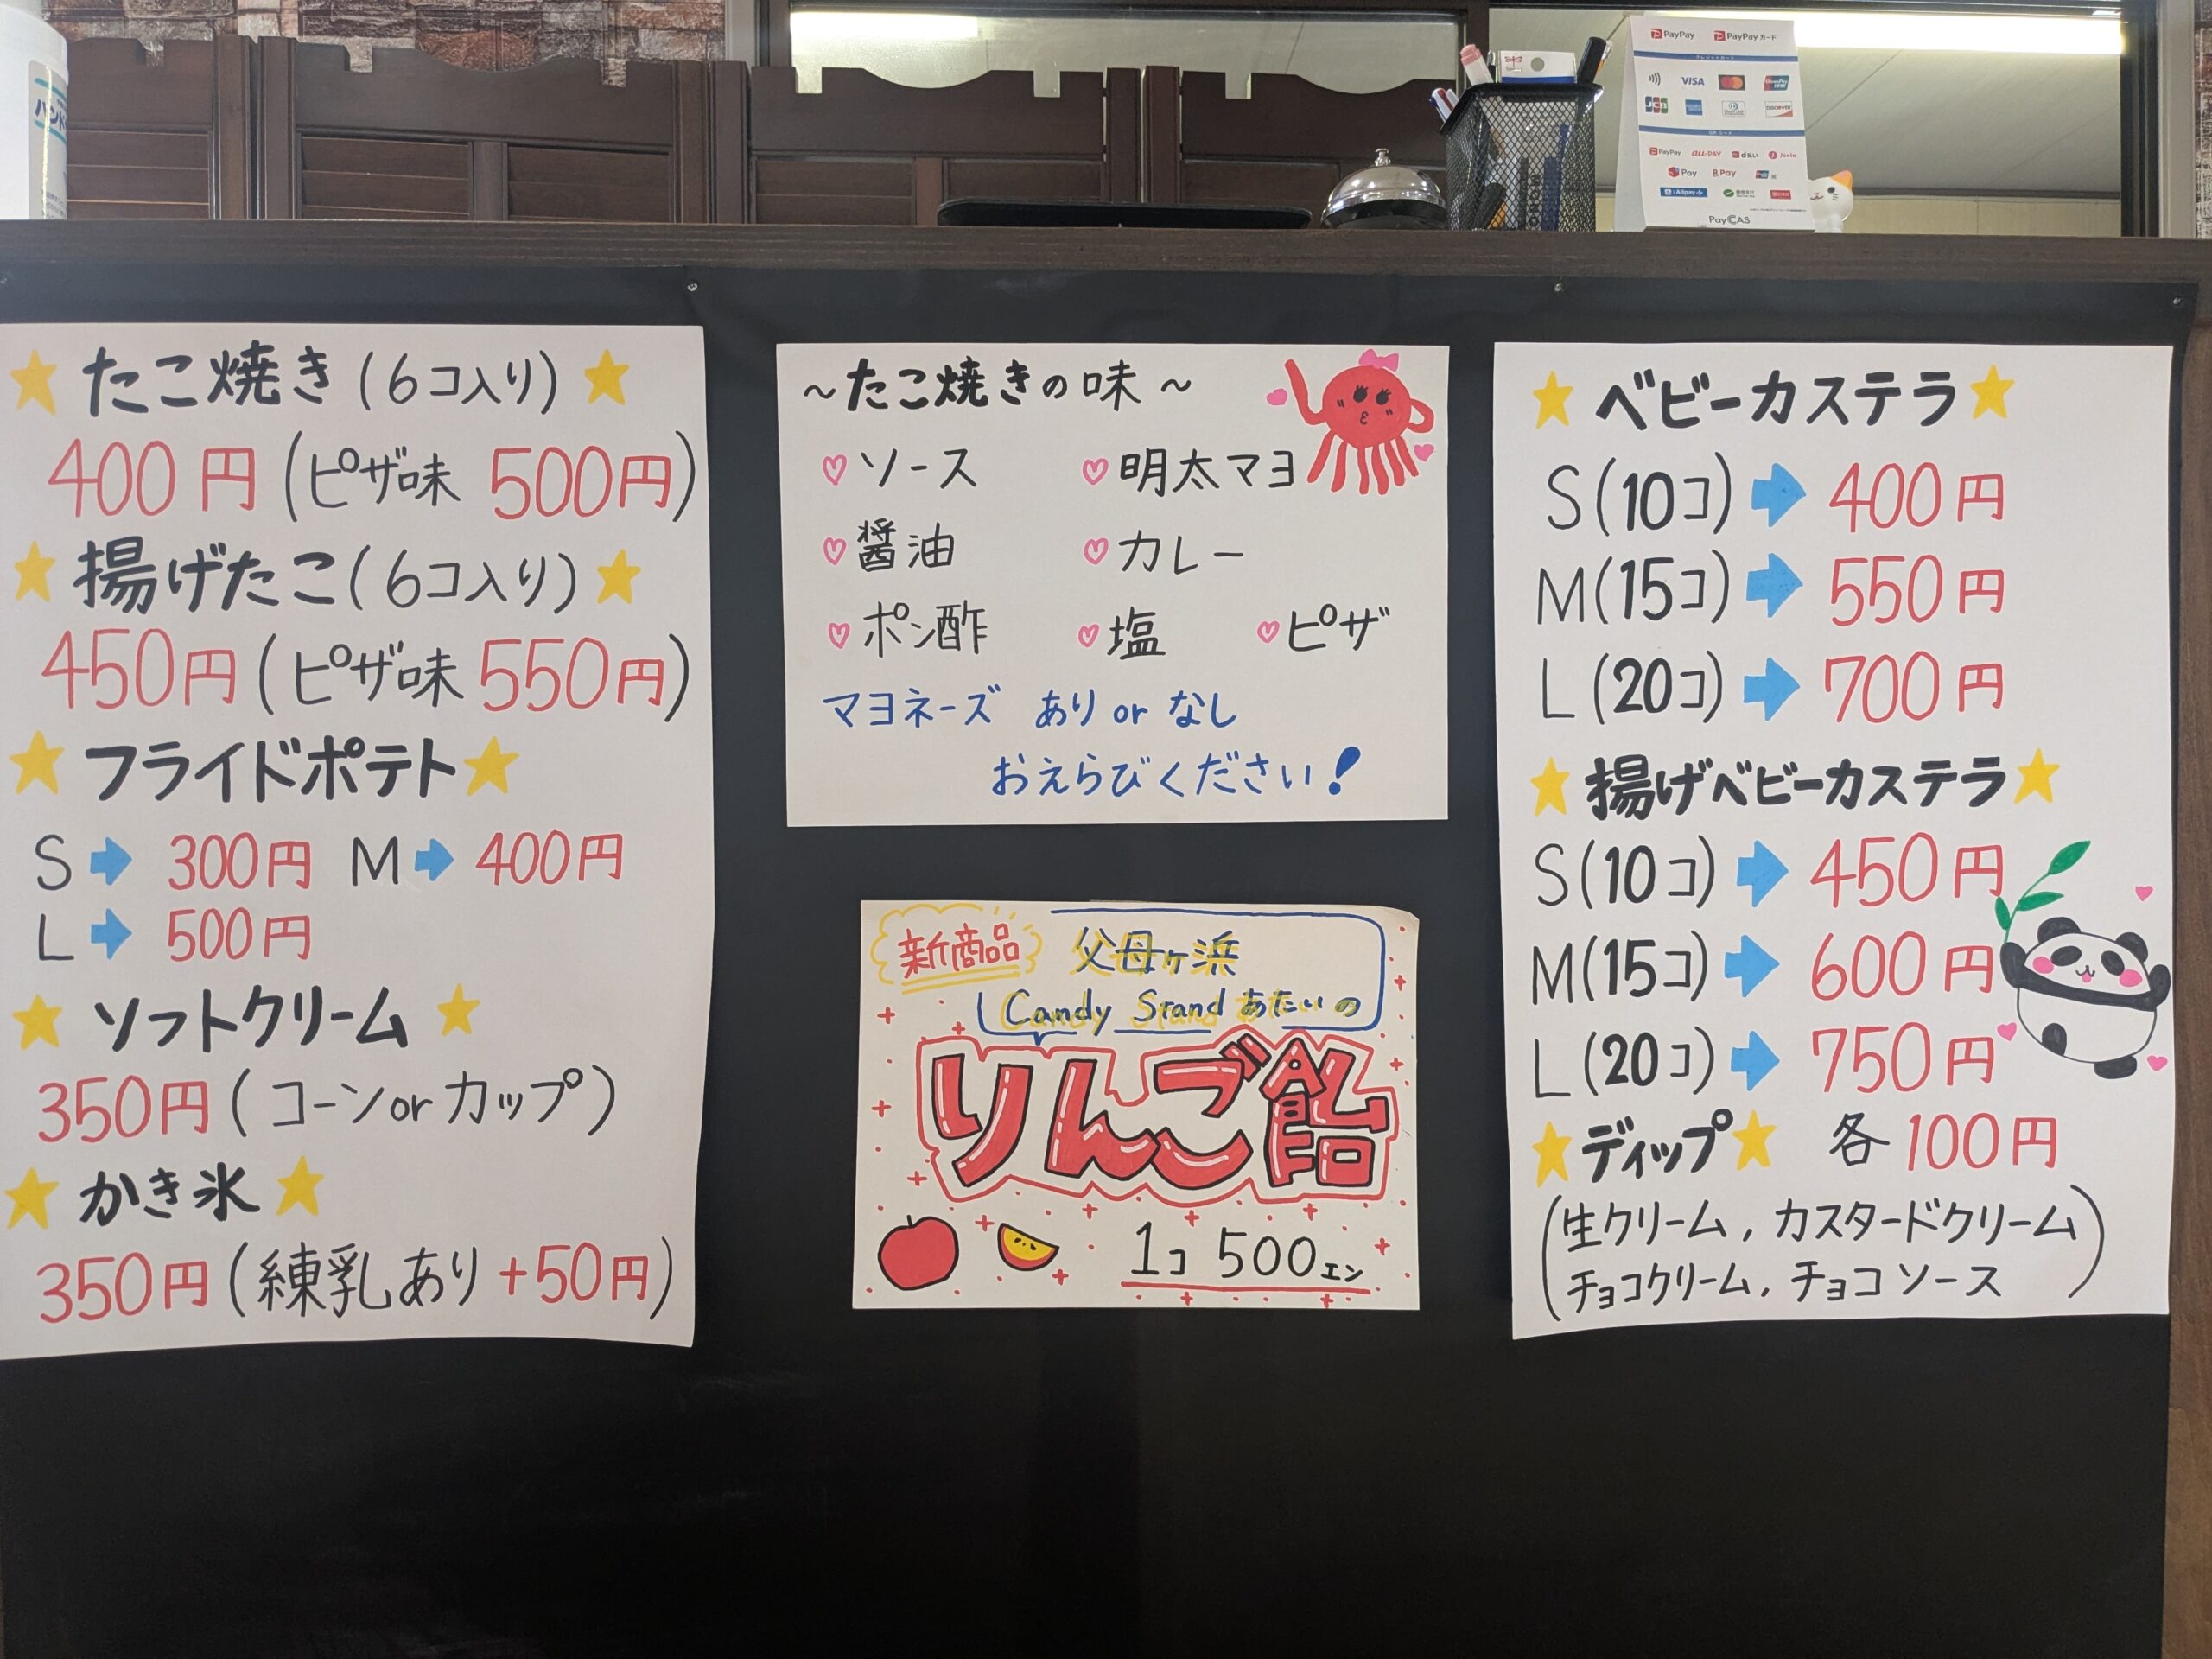 PayPay PayPay カード
クレジットカード
VISA
JCB
DISCOVER
QRコード
PayPay au PAY d払い
Pay R Pay
Alipay+
PayCAS
★ たこ焼き (6コ入り) ★
400円 (ピザ味 500円)
★ 揚げたこ (6コ入り) ★
450円 (ピザ味 550円)
★ フライドポテト ★
S ➡ 300円 M ➡ 400円
L ➡ 500円
★ ソフトクリーム ★
350円 (コーン or カップ)
★ かき氷 ★
350円 (練乳あり +50円)
~たこ焼きの味~
♡ ソース ♡ 明太マヨ
♡ 醤油 ♡ カレー
♡ ポン酢 ♡ 塩 ♡ ピザ
マヨネーズ あり or なし
おえらびください!
新商品 父母ヶ浜
Candy Stand あたいの
りんご飴
1コ 500エン
★ ベビーカステラ ★
S (10コ) ➡ 400円
M (15コ) ➡ 550円
L (20コ) ➡ 700円
★ 揚げベビーカステラ ★
S (10コ) ➡ 450円
M (15コ) ➡ 600円
L (20コ) ➡ 750円
★ ディップ ★ 各100円
(生クリーム, カスタードクリーム
チョコクリーム, チョコソース)